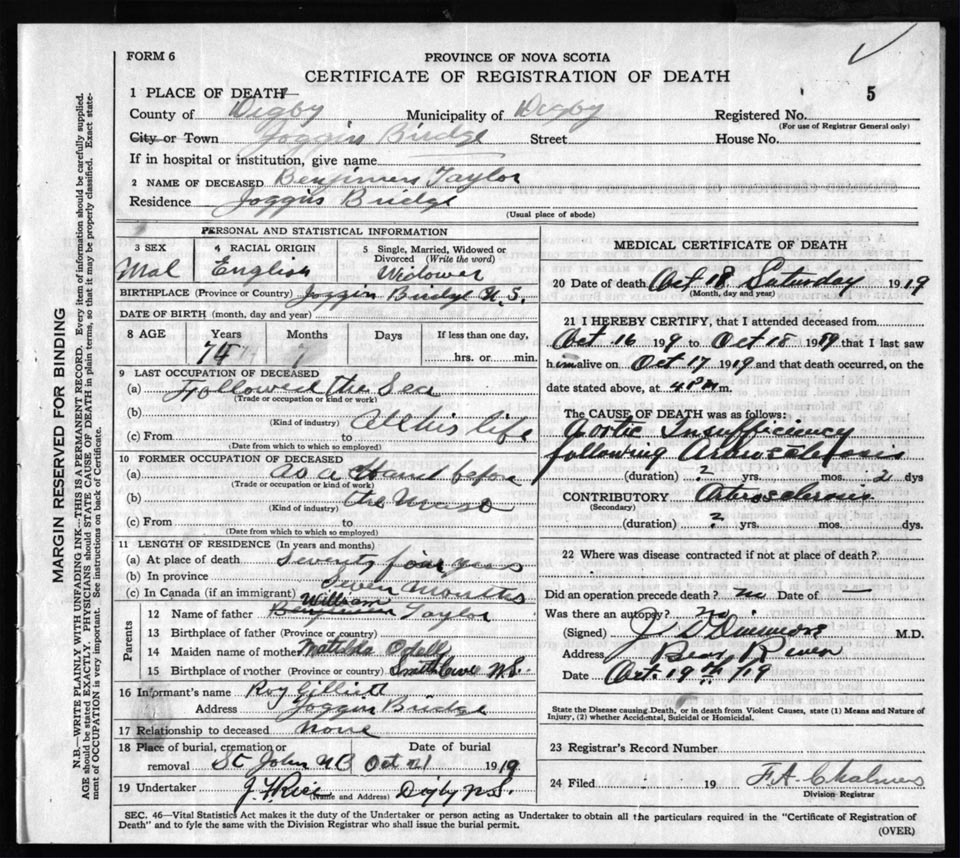 FORM 6
PROVINCE OF NOVA SCOTIA
CERTIFICATE OF REGISTRATION OF DEATH
5
1 PLACE OF DEATH
County of Digby Municipality of Digby Registered No.
(For use of Registrar General only)
City or Town Joggins Bridge Street House No.
If in hospital or institution, give name
2 NAME OF DECEASED Benjimen Taylor
Residence Joggins Bridge
(Usual place of abode)
PERSONAL AND STATISTICAL INFORMATION
3 SEX 4 RACIAL ORIGIN 5 Single, Married, Widowed or Divorced (Write the word)
Mal English Widower
BIRTHPLACE (Province or Country) Joggin Bridge N.S.
DATE OF BIRTH (month, day and year)
8 AGE Years Months Days If less than one day,
74 7 hrs. or min.
9 LAST OCCUPATION OF DECEASED
(a) Followed the Sea
(Trade or occupation or kind of work)
(b) All his life
(Kind of industry)
(c) From to
(Date from which to which so employed)
10 FORMER OCCUPATION OF DECEASED
(a) as a Hand before
(Trade or occupation or kind of work)
(b) the
(Kind of industry)
(c) From to
(Date from which to which so employed)
11 LENGTH OF RESIDENCE (In years and months)
(a) At place of death Seventy four years
(b) In province
(c) In Canada (if an immigrant) Seven Months
Parents
12 Name of father Benjimen William Taylor
13 Birthplace of father (Province or country)
14 Maiden name of mother Matilda Odell
15 Birthplace of mother (Province or country) Smith Cove N.S.
16 Informant's name Roy
Address Joggin Bridge
17 Relationship to deceased None
18 Place of burial, cremation or removal Date of burial
St. John N B Oct 21 1919
19 Undertaker J. H Rice Digby N.S.
(Name and Address)
MEDICAL CERTIFICATE OF DEATH
20 Date of death Oct 18 Saturday 1919
(Month, day and year)
21 I HEREBY CERTIFY, that I attended deceased from
Oct 16 199 to Oct 18 1919 that I last saw
him alive on Oct 17 1919 and that death occurred, on the
date stated above, at 4 PM m.
The CAUSE OF DEATH was as follows:
Aortic Insufficiency
following Arteriosclerosis
(duration) ? yrs. mos. 2 dys
CONTRIBUTORY Arteriosclerosis
(Secondary)
(duration) ? yrs. mos. dys.
22 Where was disease contracted if not at place of death?
Did an operation precede death? no Date of —
Was there an autopsy? no
(Signed) M.D.
Address Bear River
Date Oct. 19th /19
State the Disease causing Death, or in death from Violent Causes, state (1) Means and Nature of
Injury, (2) whether Accidental, Suicidal or Homicidal.
23 Registrar's Record Number
24 Filed 19 F. A. Chalmers
Division Registrar
SEC. 46—Vital Statistics Act makes it the duty of the Undertaker or person acting as Undertaker to obtain all the particulars required in the "Certificate of Registration of
Death" and to fyle the same with the Division Registrar who shall issue the burial permit.
(OVER)
MARGIN RESERVED FOR BINDING
N.B.—WRITE PLAINLY WITH UNFADING INK—THIS IS A PERMANENT RECORD. Every item of information should be carefully supplied.
AGE should be stated EXACTLY. PHYSICIANS should STATE CAUSE OF DEATH in plain terms, so that it may be properly classified. Exact state-
ment of OCCUPATION is very important. See instructions on back of Certificate.